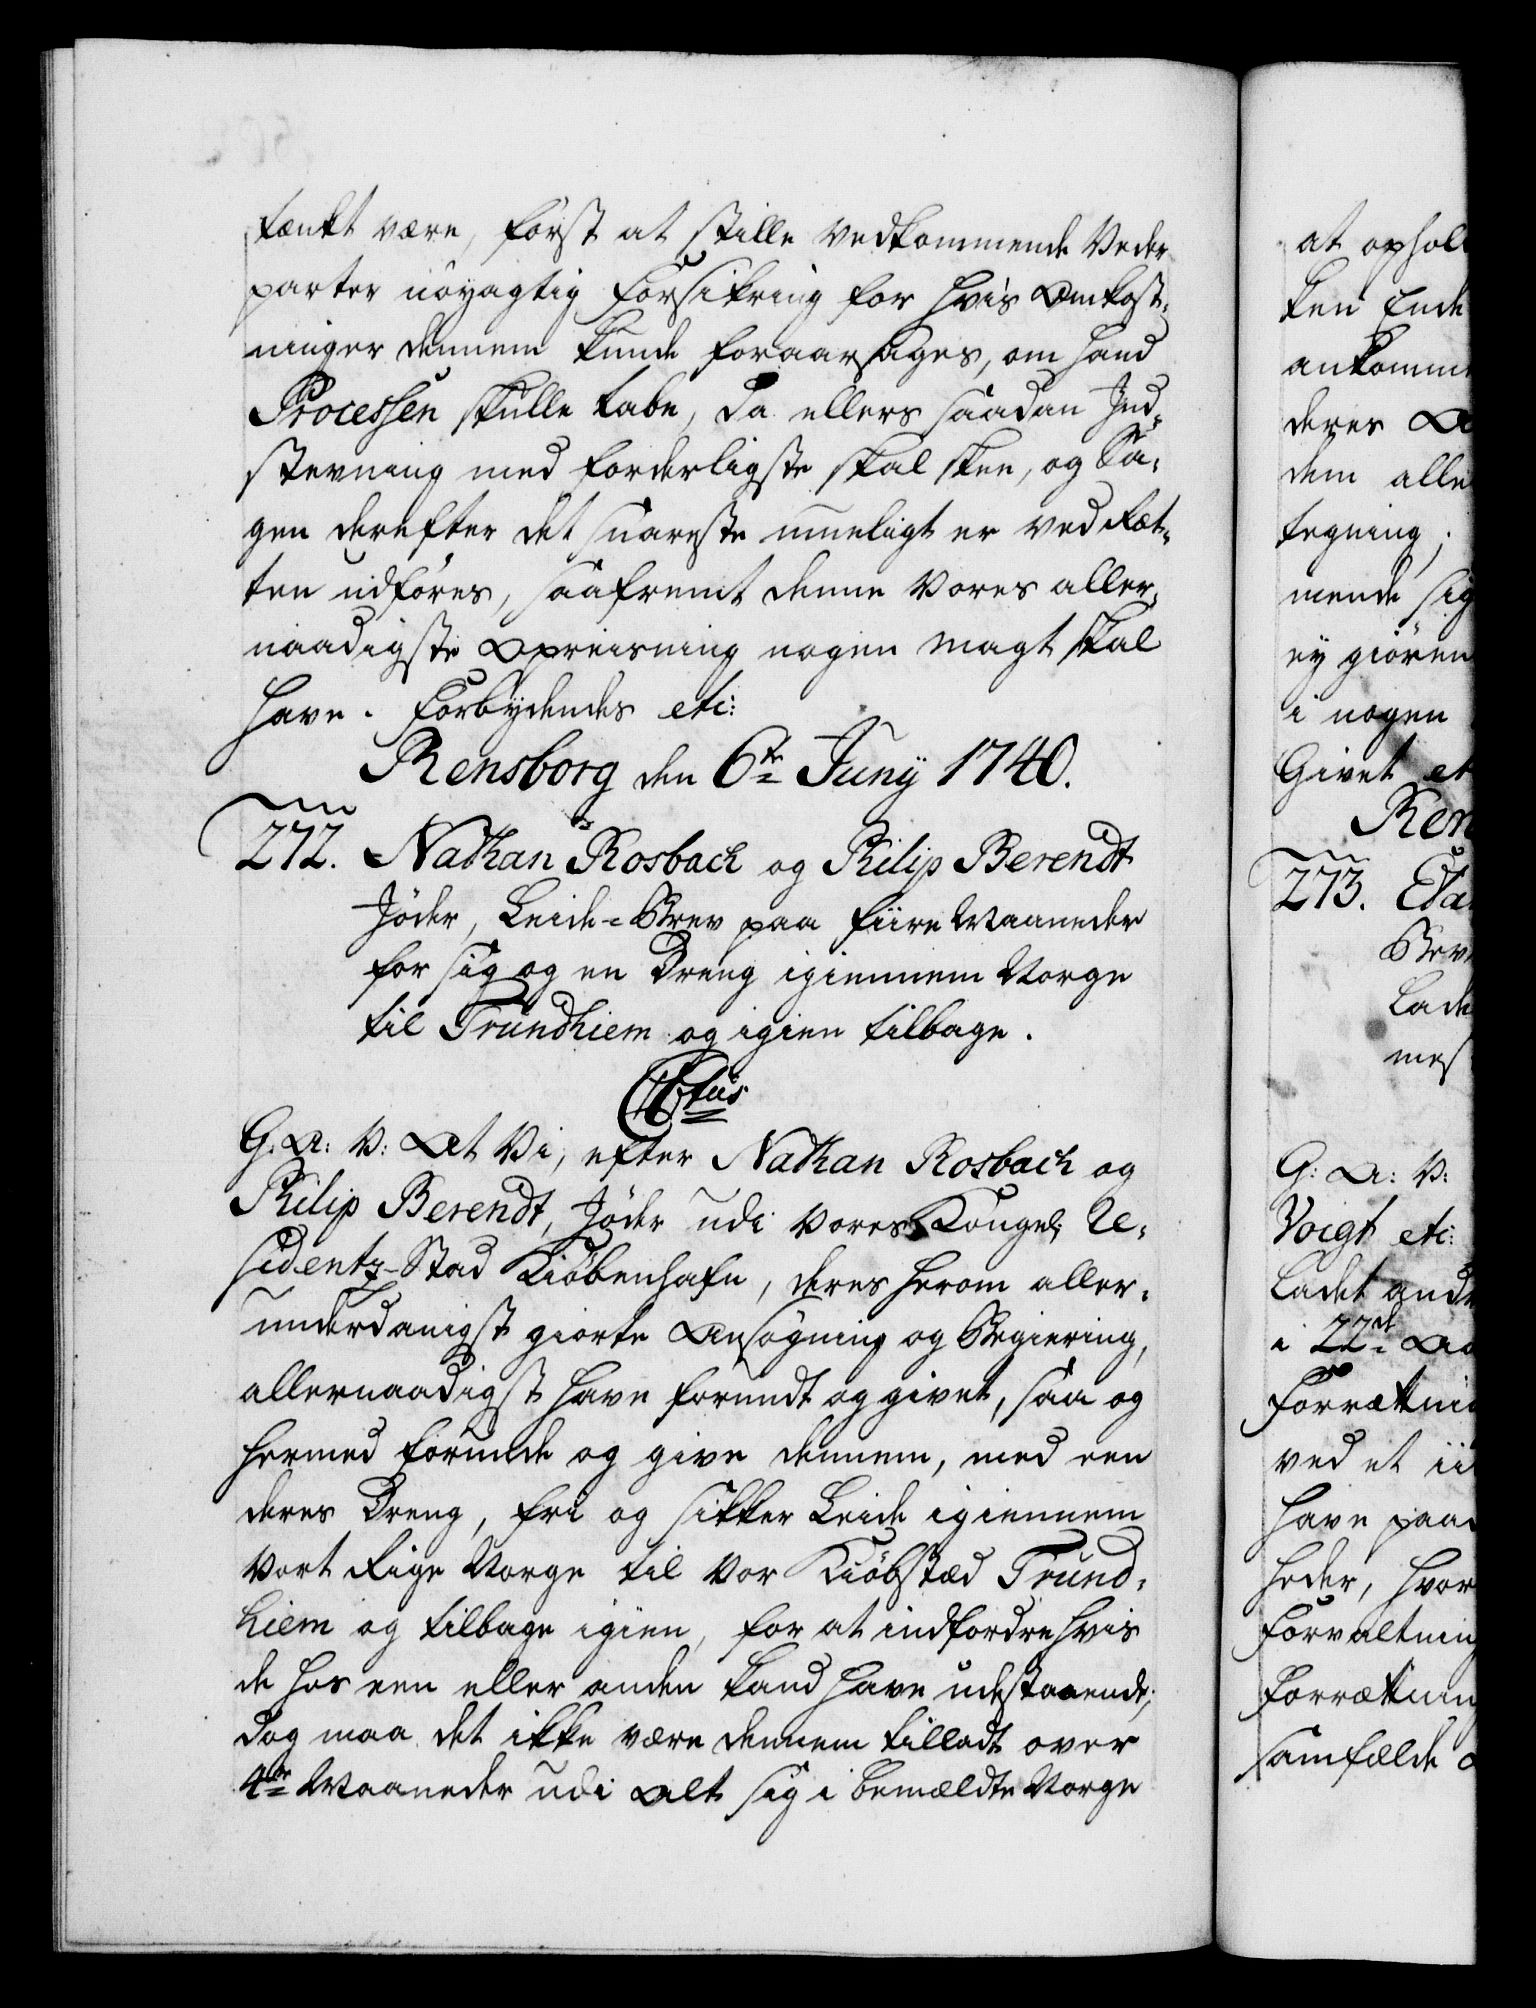 tænkt være, först at stille vedkommende Veder
parter nöyagtig Forsikring for hvis Omkost-
ninger dennem kunde foraarsages, om hand
Processen skulle tabe, da ellers saadan Ind-
stevning med forderligste skal skee, og Sa-
gen derefter det snareste mueligt er ved Ret-
ten udföres, saafremt denne Vores aller-
naadigste Opreisning nogen magt skal
have. Forbydendes etc:
Rensborg den 6te Juny 1740.
272. Nathan Rosbach og Philip Berendt
Jøder, Leide-Brev paa fiire Maaneder
for sig og en Dreng igiennem Norge
til Trundhiem og igien tilbage.
G: A: V: At Vi, efter Nathan Rosbach og
Philip Berendt, Jøder udi Vores Kongel: Re-
sidentz-Stad Kiöbenhafn, deres herom aller-
underdanigst giorte Ansögning og Begiering,
allernaadigst have forundt og givet, saa og
hermed forunde og give dennem, med een
deres Dreng, fri og sikker Leide igiennem
Vort Rige Norge til Vor Kiöbstæd Trund-
hiem og tilbage igien, for at indfordre hvis
de hos een eller anden kand have udestaaende;
Dog maa det ikke være dennem tilladt over
4re Maaneder udi alt sig i bemældte Norge
at ophol
ken Ende
ankomme
deres
dem alle
tegning;
mende sig
ey giören
i nogen
Givet et
Ren
273.
G: A: V:
Voigt etc:
ladet
i 22de
Forrætni
ved et
have paa
heder, hvor
Forvaltnin
Forrætnin
samfælde